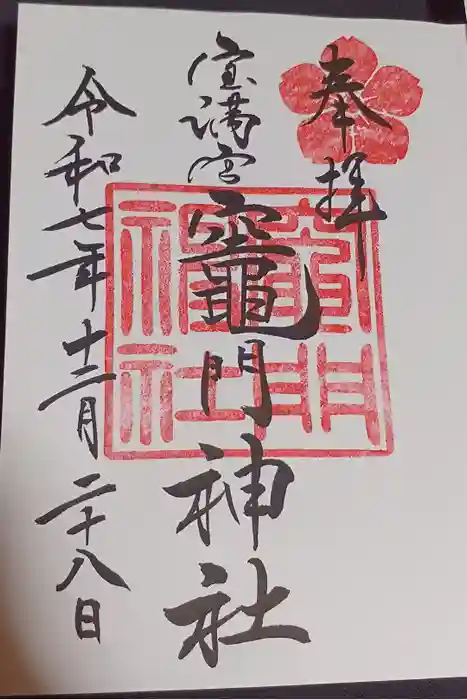 奉拝
宝満宮
竈門神社
竈門神社
令和七年十二月二十八日